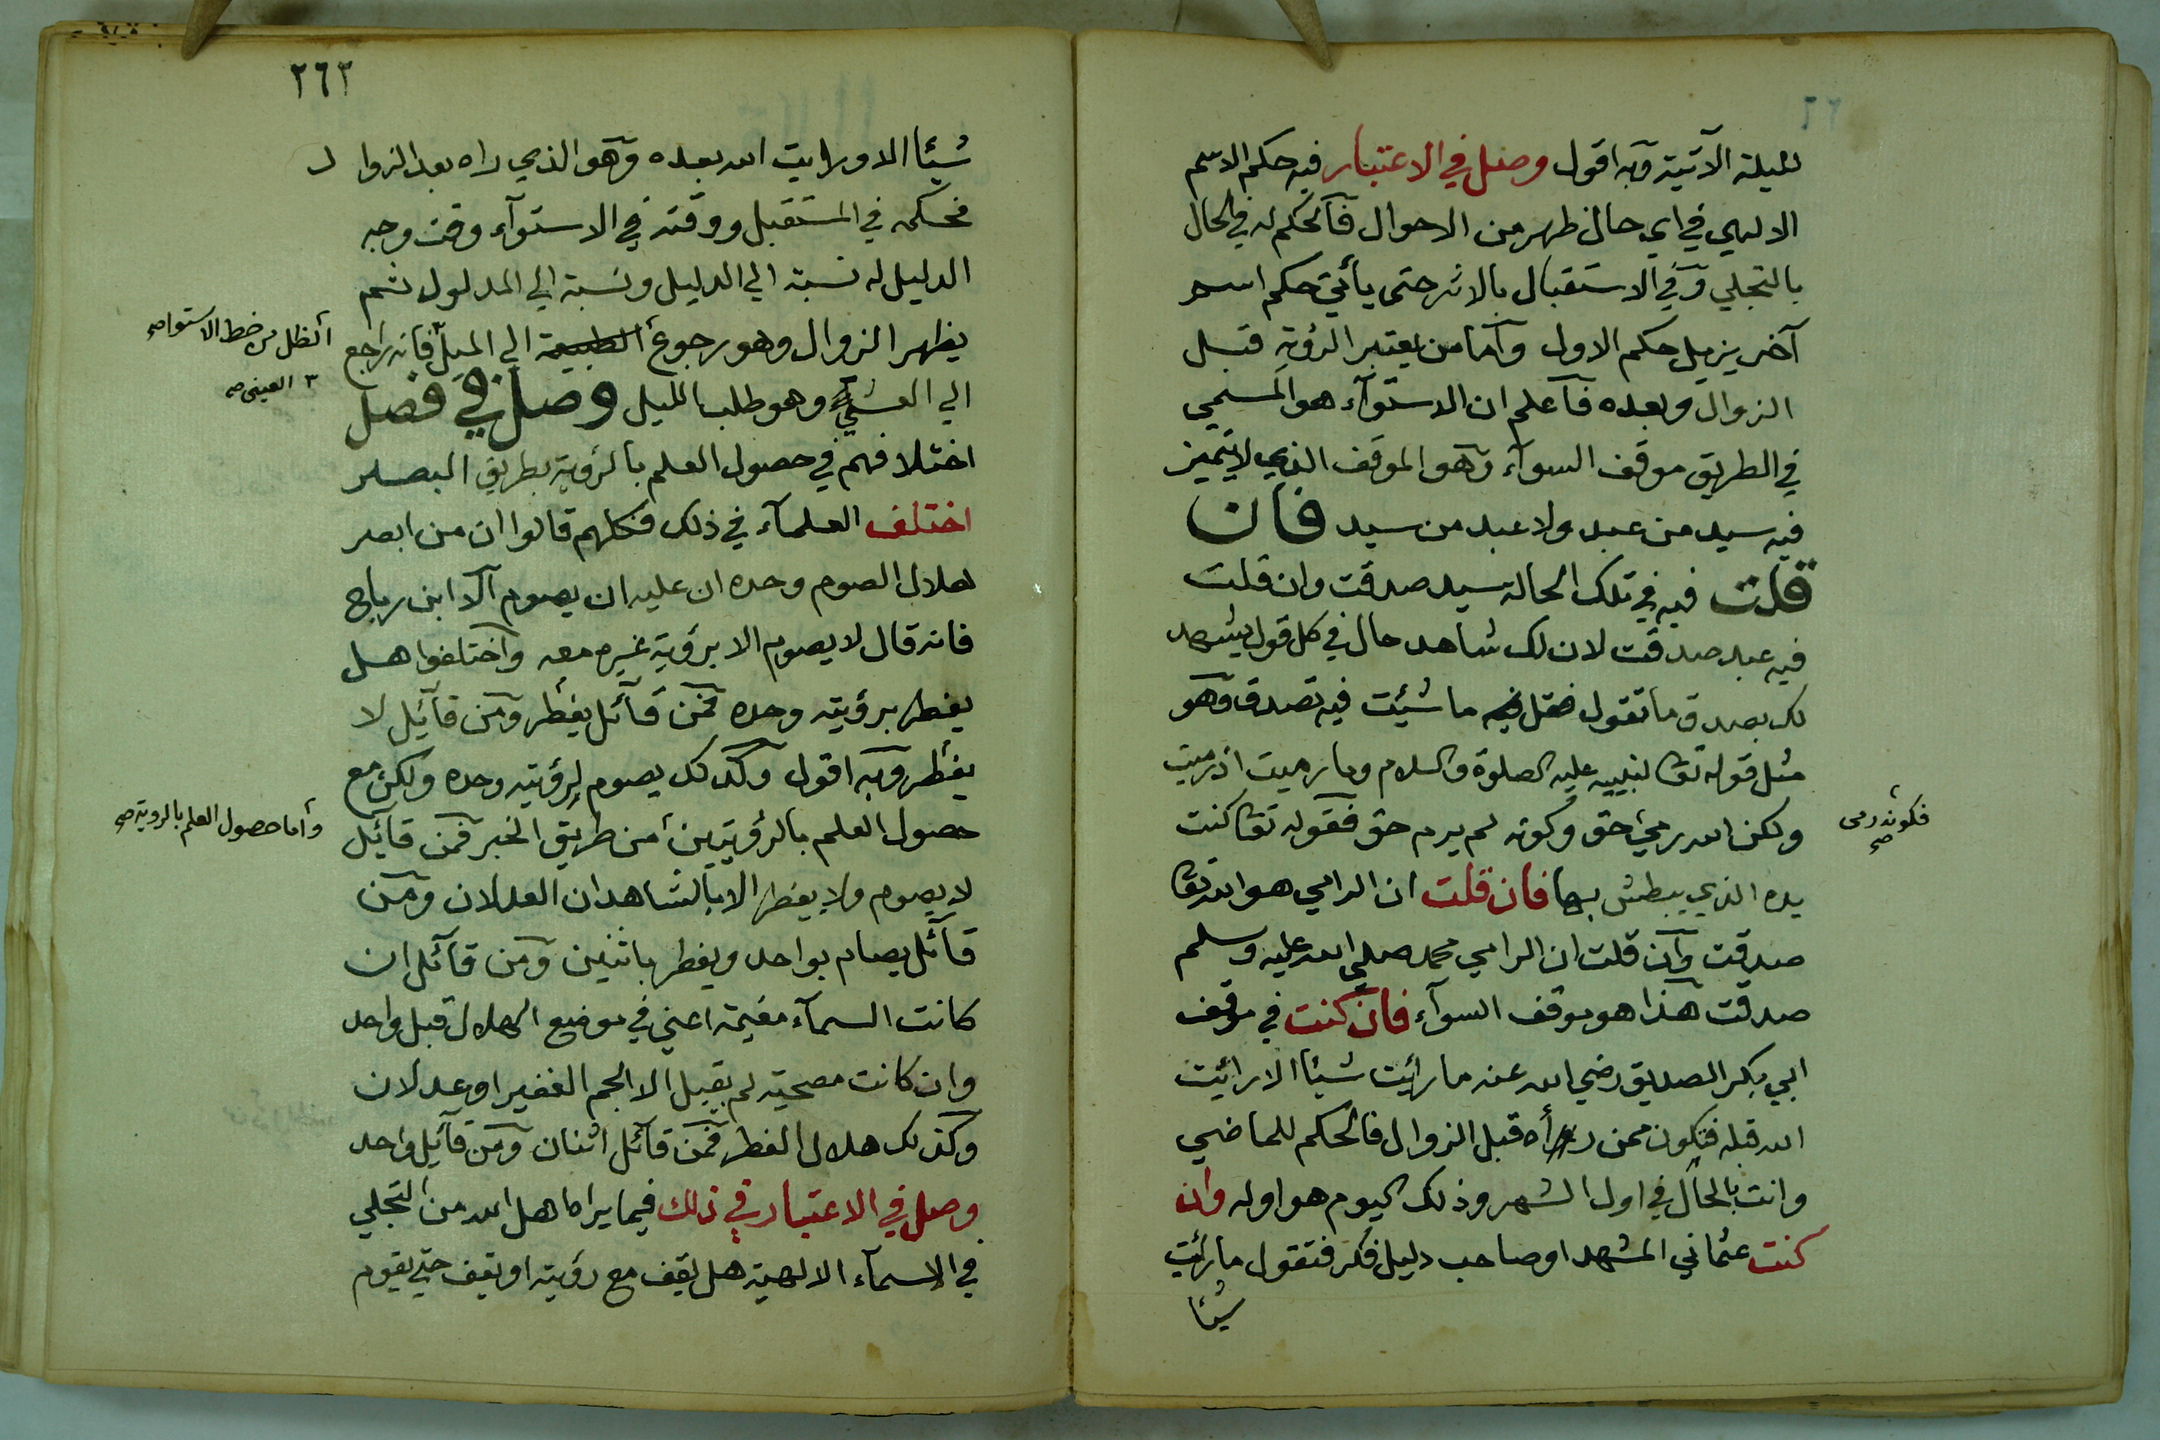 لليلة الآتية وبه اقول وصل في الاعتبار فيه حكم الاسم
الالهي في اي حال ظهر من الاحوال فالحكم له في الحال
بالتجلي وفي الاستقبال بالاثر حتى يأتي حكم اسم
آخر يزيل حكم الاول واما من يعتبر الرؤية قبل
الزوال وبعده فاعلم ان الاستوآء هو المسمي
في الطريق موقف السوآء وهو الموقف الذي لا يتميز
فيه سيد من عبد ولا عبد من سيد فان
قلت فيه في تلك الحالة سيد صدقت وان قلت
فيه عبد صدقت لان لك شاهد حال في كل قول يشهد
لك بصدق ما تقول فقل فيه ما شيئت فيه تصدق وهو
مثل قوله تعا لنبييه عليه الصلوة والسلام وما رميت اذ رميت
ولكن الله رمي حق وكونه لم يرم حق فقوله تعا كنت
فكونه رمى صح
يده الذي يبطش بها فان قلت ان الرامي هو الله تعا
صدقت وان قلت ان الرامي محمد صلي الله عليه وسلم
صدقت هذا هو موقف السوآء فان كنت في موقف
ابي بكر الصديق رضي الله عنه ما رائيت شيئا الا رائيت
الله قبله فتكون ممن رأه قبل الزوال فالحكم للماضي
وانت بالحال في اول الشهر وذلك اليوم هو اوله وان
كنت عثماني المشهد او صاحب دليل فكر فتقول ما رائيت
شيئا
٢٦٢
شيئا الا ورايت الله بعده وهو الذي راه بعد الزوال
فحكمه في المستقبل ووقته في الاستوآء وقت وجه
الدليل له نسبة الي الدليل ونسبة الي المدلول ثم
يظهر الزوال وهو رجوع الطبيعة الي الميل فانه راجع
الظل من خط الاستوا صح
الي العشي وهو طلب الليل وصل في فصل
٣ العينى صح
اختلافهم في حصول العلم بالرؤية بطريق البصر
اختلف العلمآء في ذلك فكلهم قالوا ان من ابصر
هلال الصوم وحده ان عليه ان يصوم الا ابن رباح
فانه قال لا يصوم الا برؤية غيره معه واختلفوا هل
يفطر برؤيته وحده فمن قآئل يفطر ومن قآئيل لا
يفطر وبه اقول وكذلك يصوم لرؤيته وحده ولكن مع
حصول العلم بالرؤيتيين من طريق الخبر فمن قآئيل
وأما حصول العلم بالروية صح
لا يصوم ولا يفطر الا بالشاهدان العدلان ومن
قآئل يصام بواحد ويفطر باثنين ومن قآئل ان
كانت السمآء مغيمة اعني في موضع الهلال قبل واحد
وان كانت مصحية لم يقبل الا الجم الغفير او عدلان
وكذلك هلال الفطر فمن قآئل اثنان ومن قآئيل واحد
وصل في الاعتبار في ذلك فيما يراه اهل الله من التجلي
في الاسمآء الالهية هل يقف مع رؤيته او يقف حتي يقوم